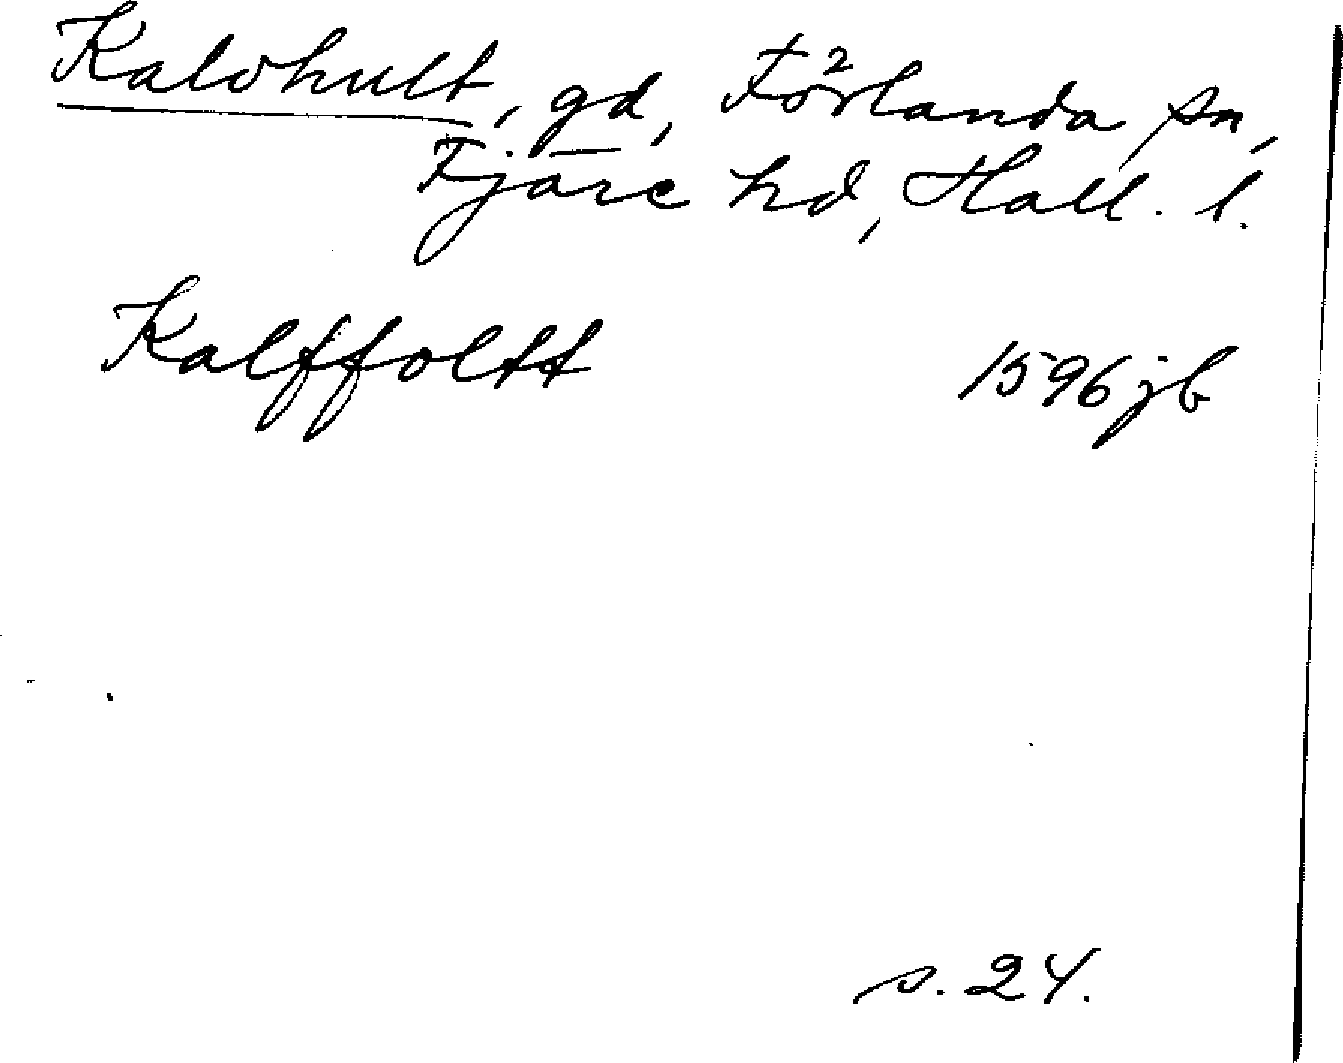 Kalvhult, gd, Förlanda sn,
Fjäre hd, Hall. l.
Kalffoltt 1596 jb
s. 24.